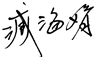 臧海娟